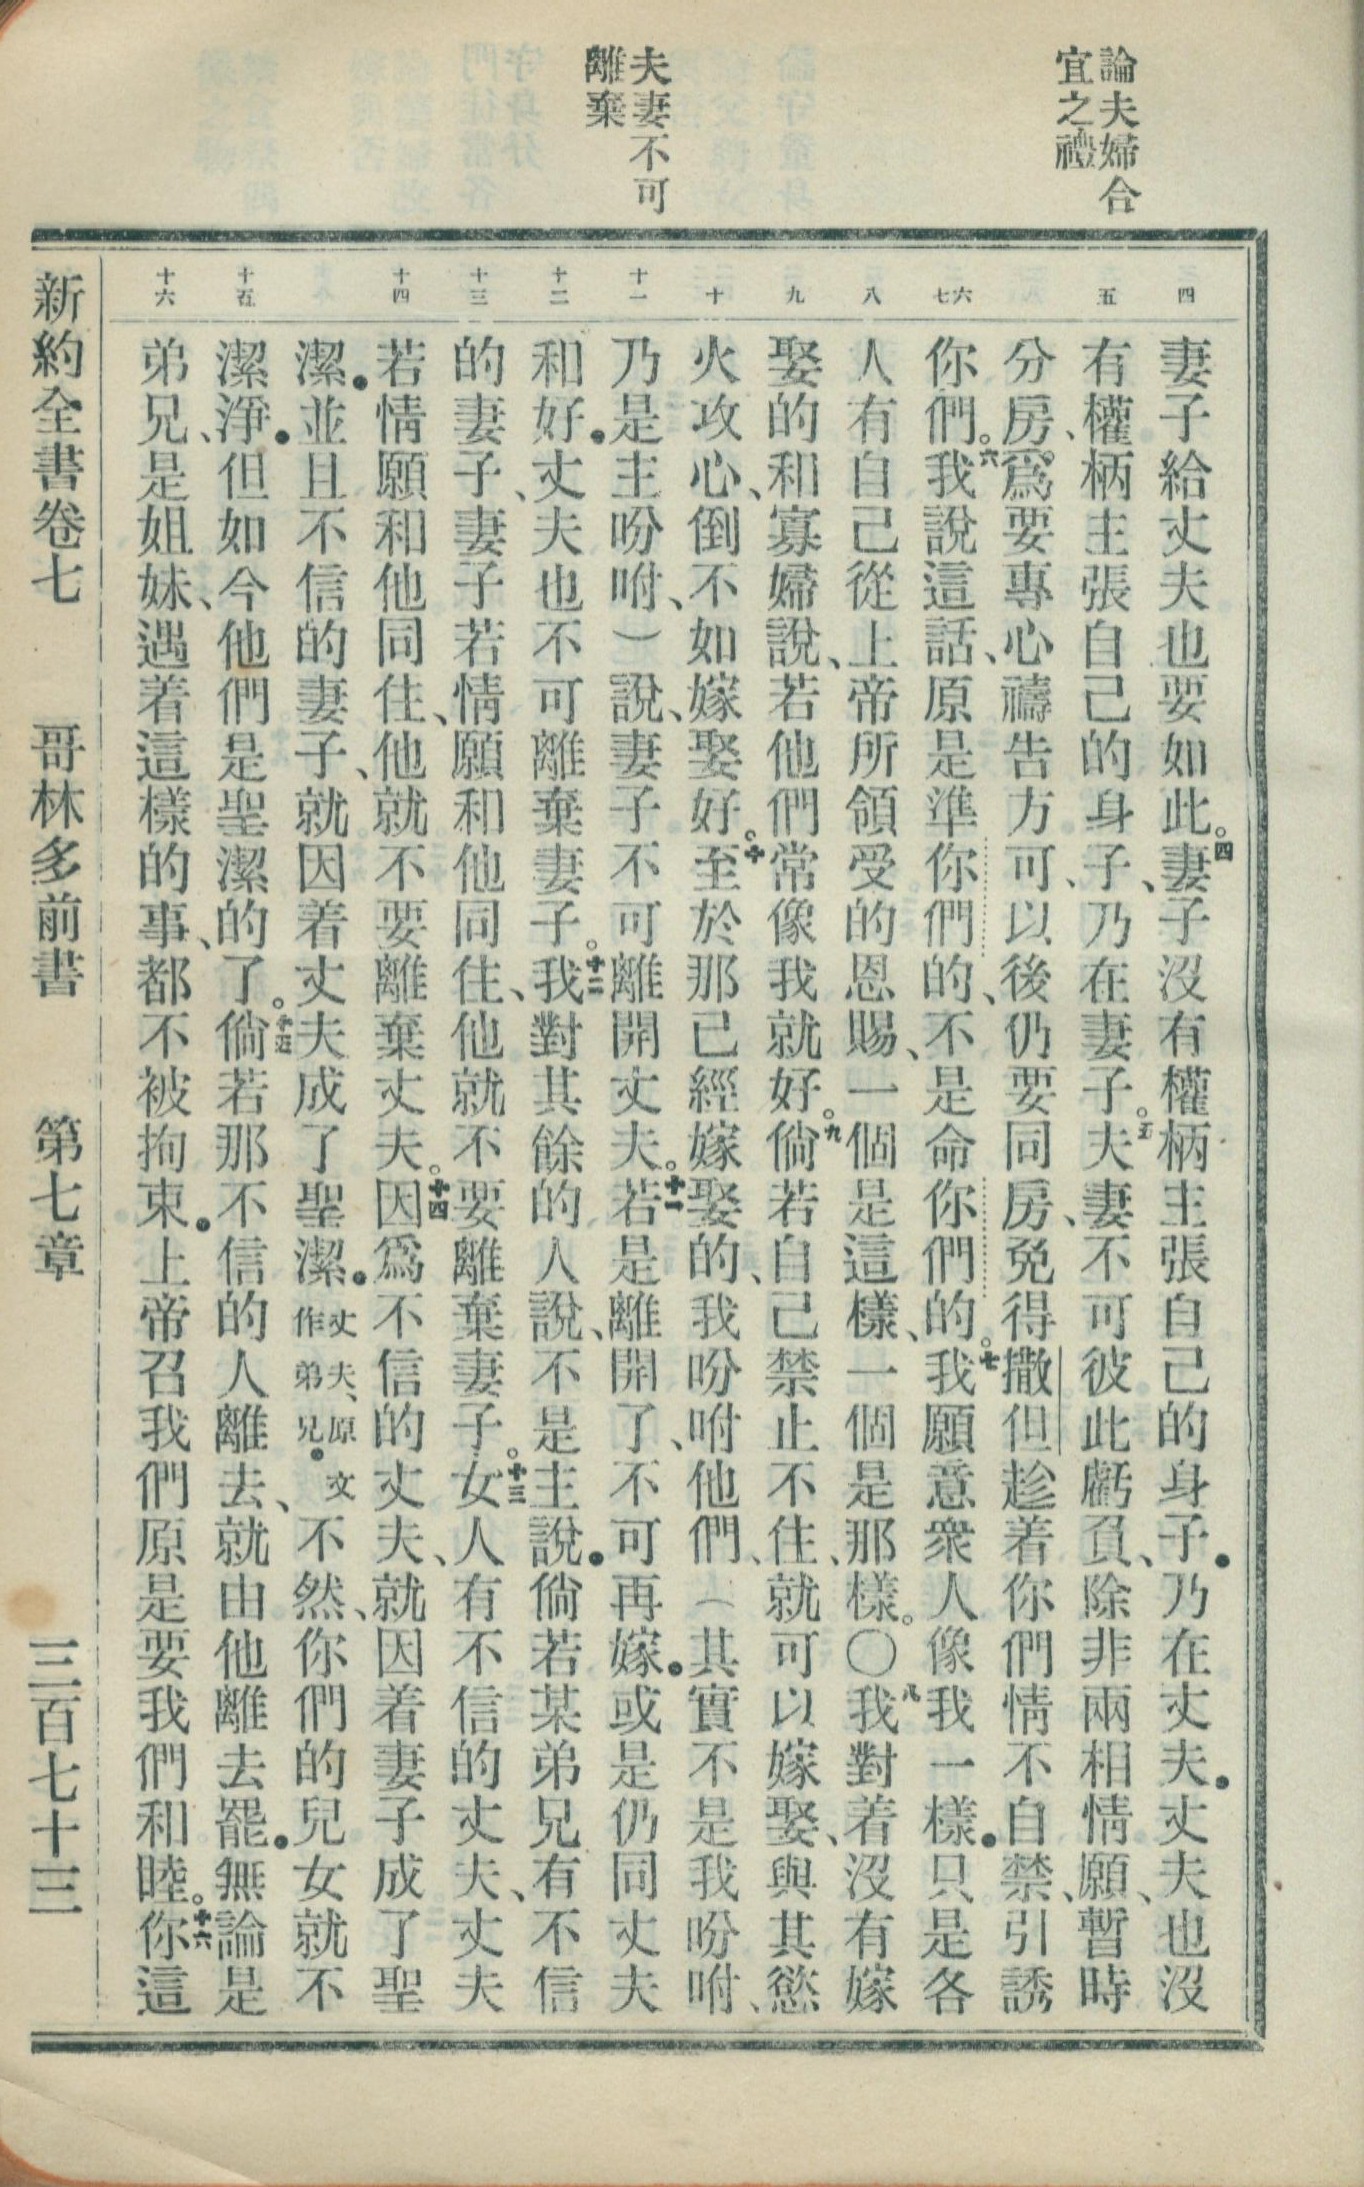 論夫婦合
宜之禮
夫妻不可
離棄
四
五
六
七
八
九
十
十一
十二
十三
十四
十五
十六
妻子給丈夫也要如此。四妻子、沒有權柄主張自己的身子•乃在丈夫•丈夫也沒
有權柄主張自己的身子、乃在妻子。五夫妻不可彼此虧負、除非兩相情願、暫時
分房、爲要專心禱告方可、以後仍要同房、免得撒但趁着你們情不自禁、引誘
你們。六我說這話、原是準你們的、不是命你們的。七我願意衆人像我一樣•只是各
人有自己從上帝所領受的恩賜、一個是這樣、一個是那樣。〇八我對着沒有嫁
娶的和寡婦說、若他們常像我就好。九倘若自己禁止不住、就可以嫁娶、與其慾
火攻心、倒不如嫁娶好。十至於那已經嫁娶的、我吩咐他們、（其實不是我吩咐、
乃是主吩咐、）說、妻子不可離開丈夫。十一若是離開了、不可再嫁•或是仍同丈夫
和好•丈夫也不可離棄妻子。十二我對其餘的人說、不是主說•倘若某弟兄有不信
的妻子、妻子若情願和他同住、他就不要離棄妻子。十三女人有不信的丈夫、丈夫
若情願和他同住、他就不要離棄丈夫。十四因爲不信的丈夫、就因着妻子成了聖
潔•並且不信的妻子、就因着丈夫成了聖潔•丈夫、原文作弟兄•不然、你們的兒女就不
潔淨•但如今他們是聖潔的了。十五倘若那不信的人離去、就由他離去罷•無論是
弟兄、是姐妹、遇着這樣的事、都不被拘束•上帝召我們原是要我們和睦。十六你這
新約全書卷七 哥林多前書 第七章 三百七十三